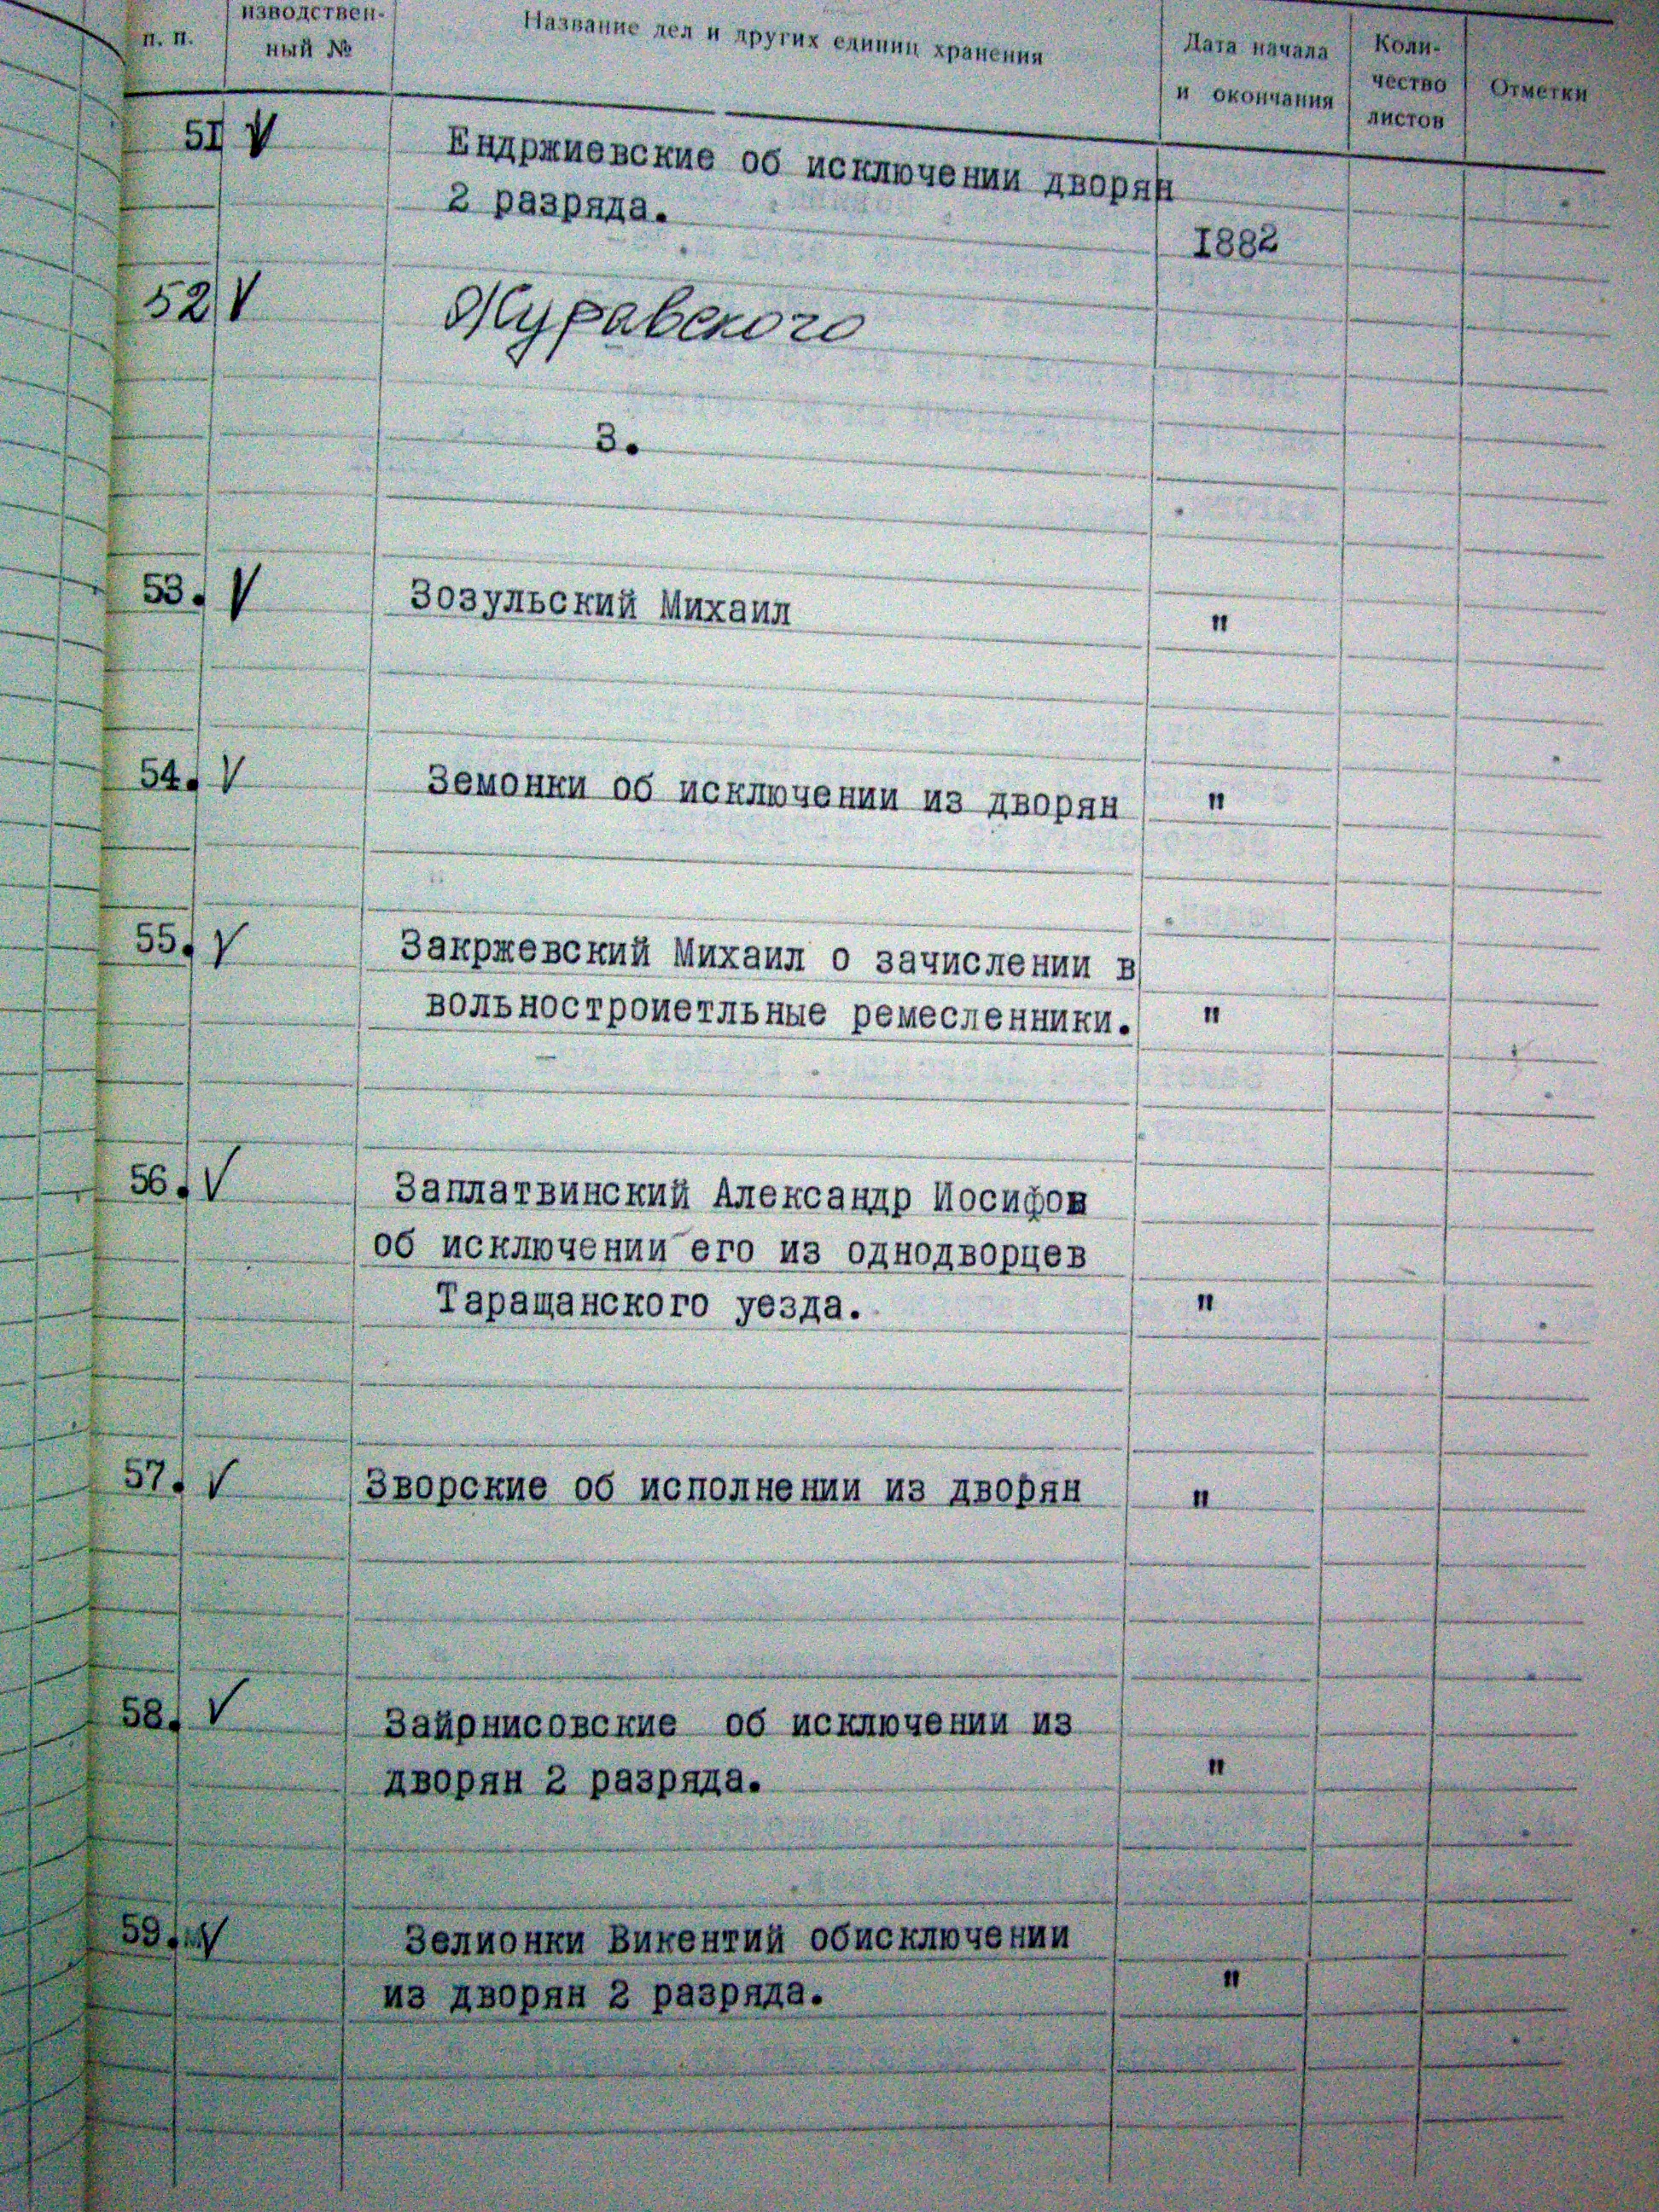 п. п.
изводствен-
ный №
Название дел и других единиц хранения
Дата начала
и окончания
Коли-
чество
листов
Отметки
5I V
Ендржиевские об исключении дворян
2 разряда.
I882
52 V
Журавского
З.
53. V
Зозульский Михаил
"
54. V
Земонки об исключении из дворян
"
55. V
Закржевский Михаил о зачислении в
вольностроиетльные ремесленники.
"
56. V
Заплатвинский Александр Иосифов
об исключении его из однодворцев
Таращанского уезда.
"
57. V
Зворские об исполнении из дворян
"
58. V
Зайрнисовские об исключении из
дворян 2 разряда.
"
59. V
Зелионки Викентий обисключении
из дворян 2 разряда.
"